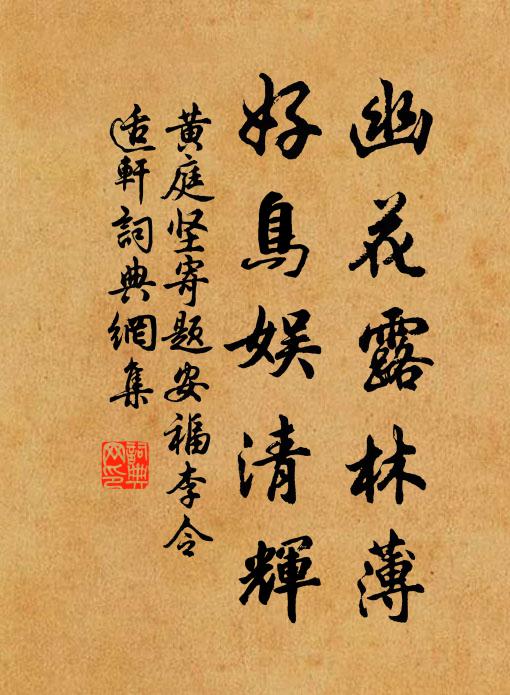 幽花露林薄
好鳥娱清輝
黄庭坚寄題安福李令
适軒詞典網集
詞典网印